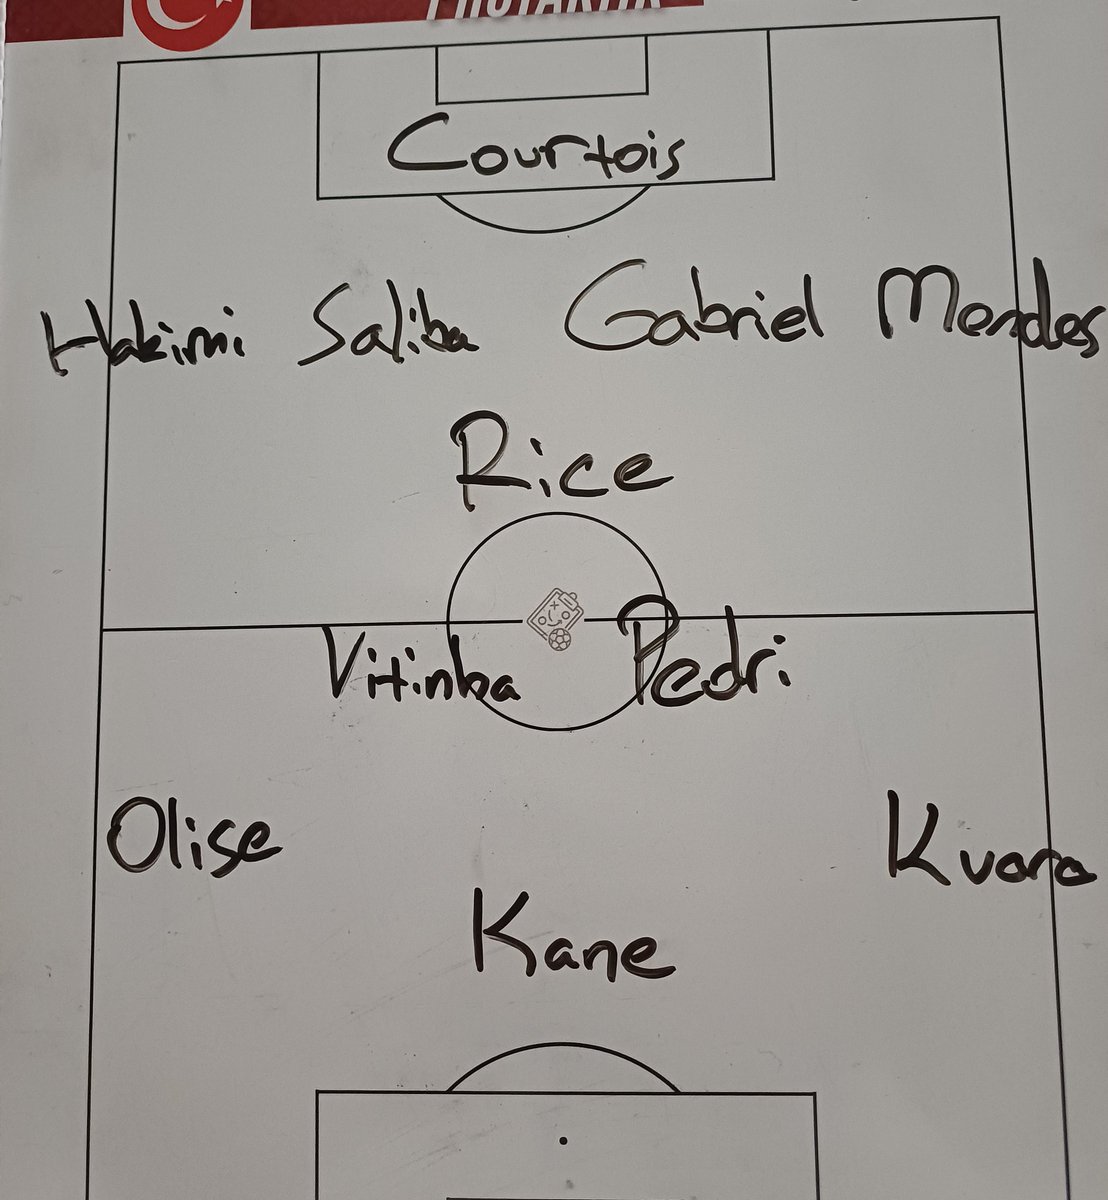 Courtois
Hakimi Saliba Gabriel Mendes
Rice
Vitinha Pedri
Olise Kvara
Kane